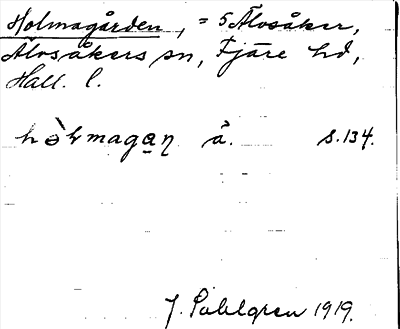 Holmagården, = 5 Älvsåker,
Älvsåkers sn, Fjäre hd,
Hall. l.
hòlmagan å. s. 134.
J. Sahlgren 1919.